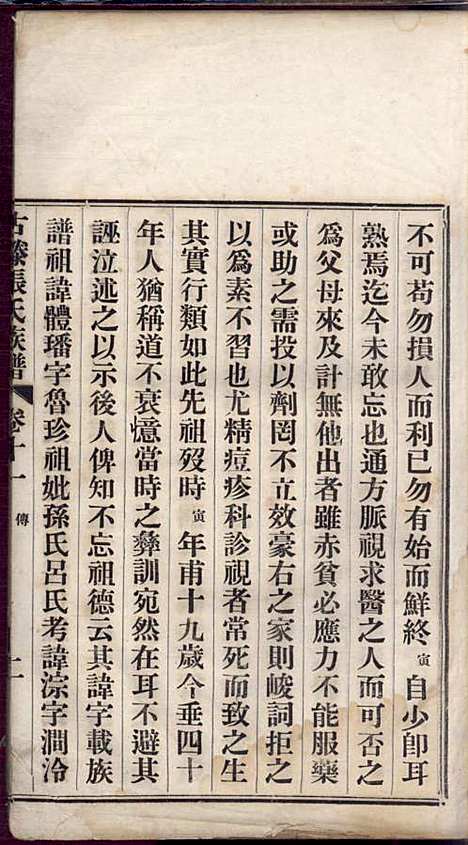 不可苟勿損人而利已勿有始而鮮終寅自少卽耳
熟焉迄今未敢忘也通方脈視求醫之人而可否之
爲父母來及計無他出者雖赤貧必應力不能服藥
或助之需投以劑罔不立效豪右之家則峻詞拒之
以爲素不習也尤精痘疹科診視者常死而致之生
其實行類如此先祖歿時寅年甫十九歲今垂四十
年人猶稱道不衰憶當時之彝訓宛然在耳不避其
誣泣述之以示後人俾知不忘祖德云其諱字載族
譜祖諱體璠字魯珍祖妣孫氏呂氏考諱淙字澗泠
古滕張氏族譜 卷十一 傳